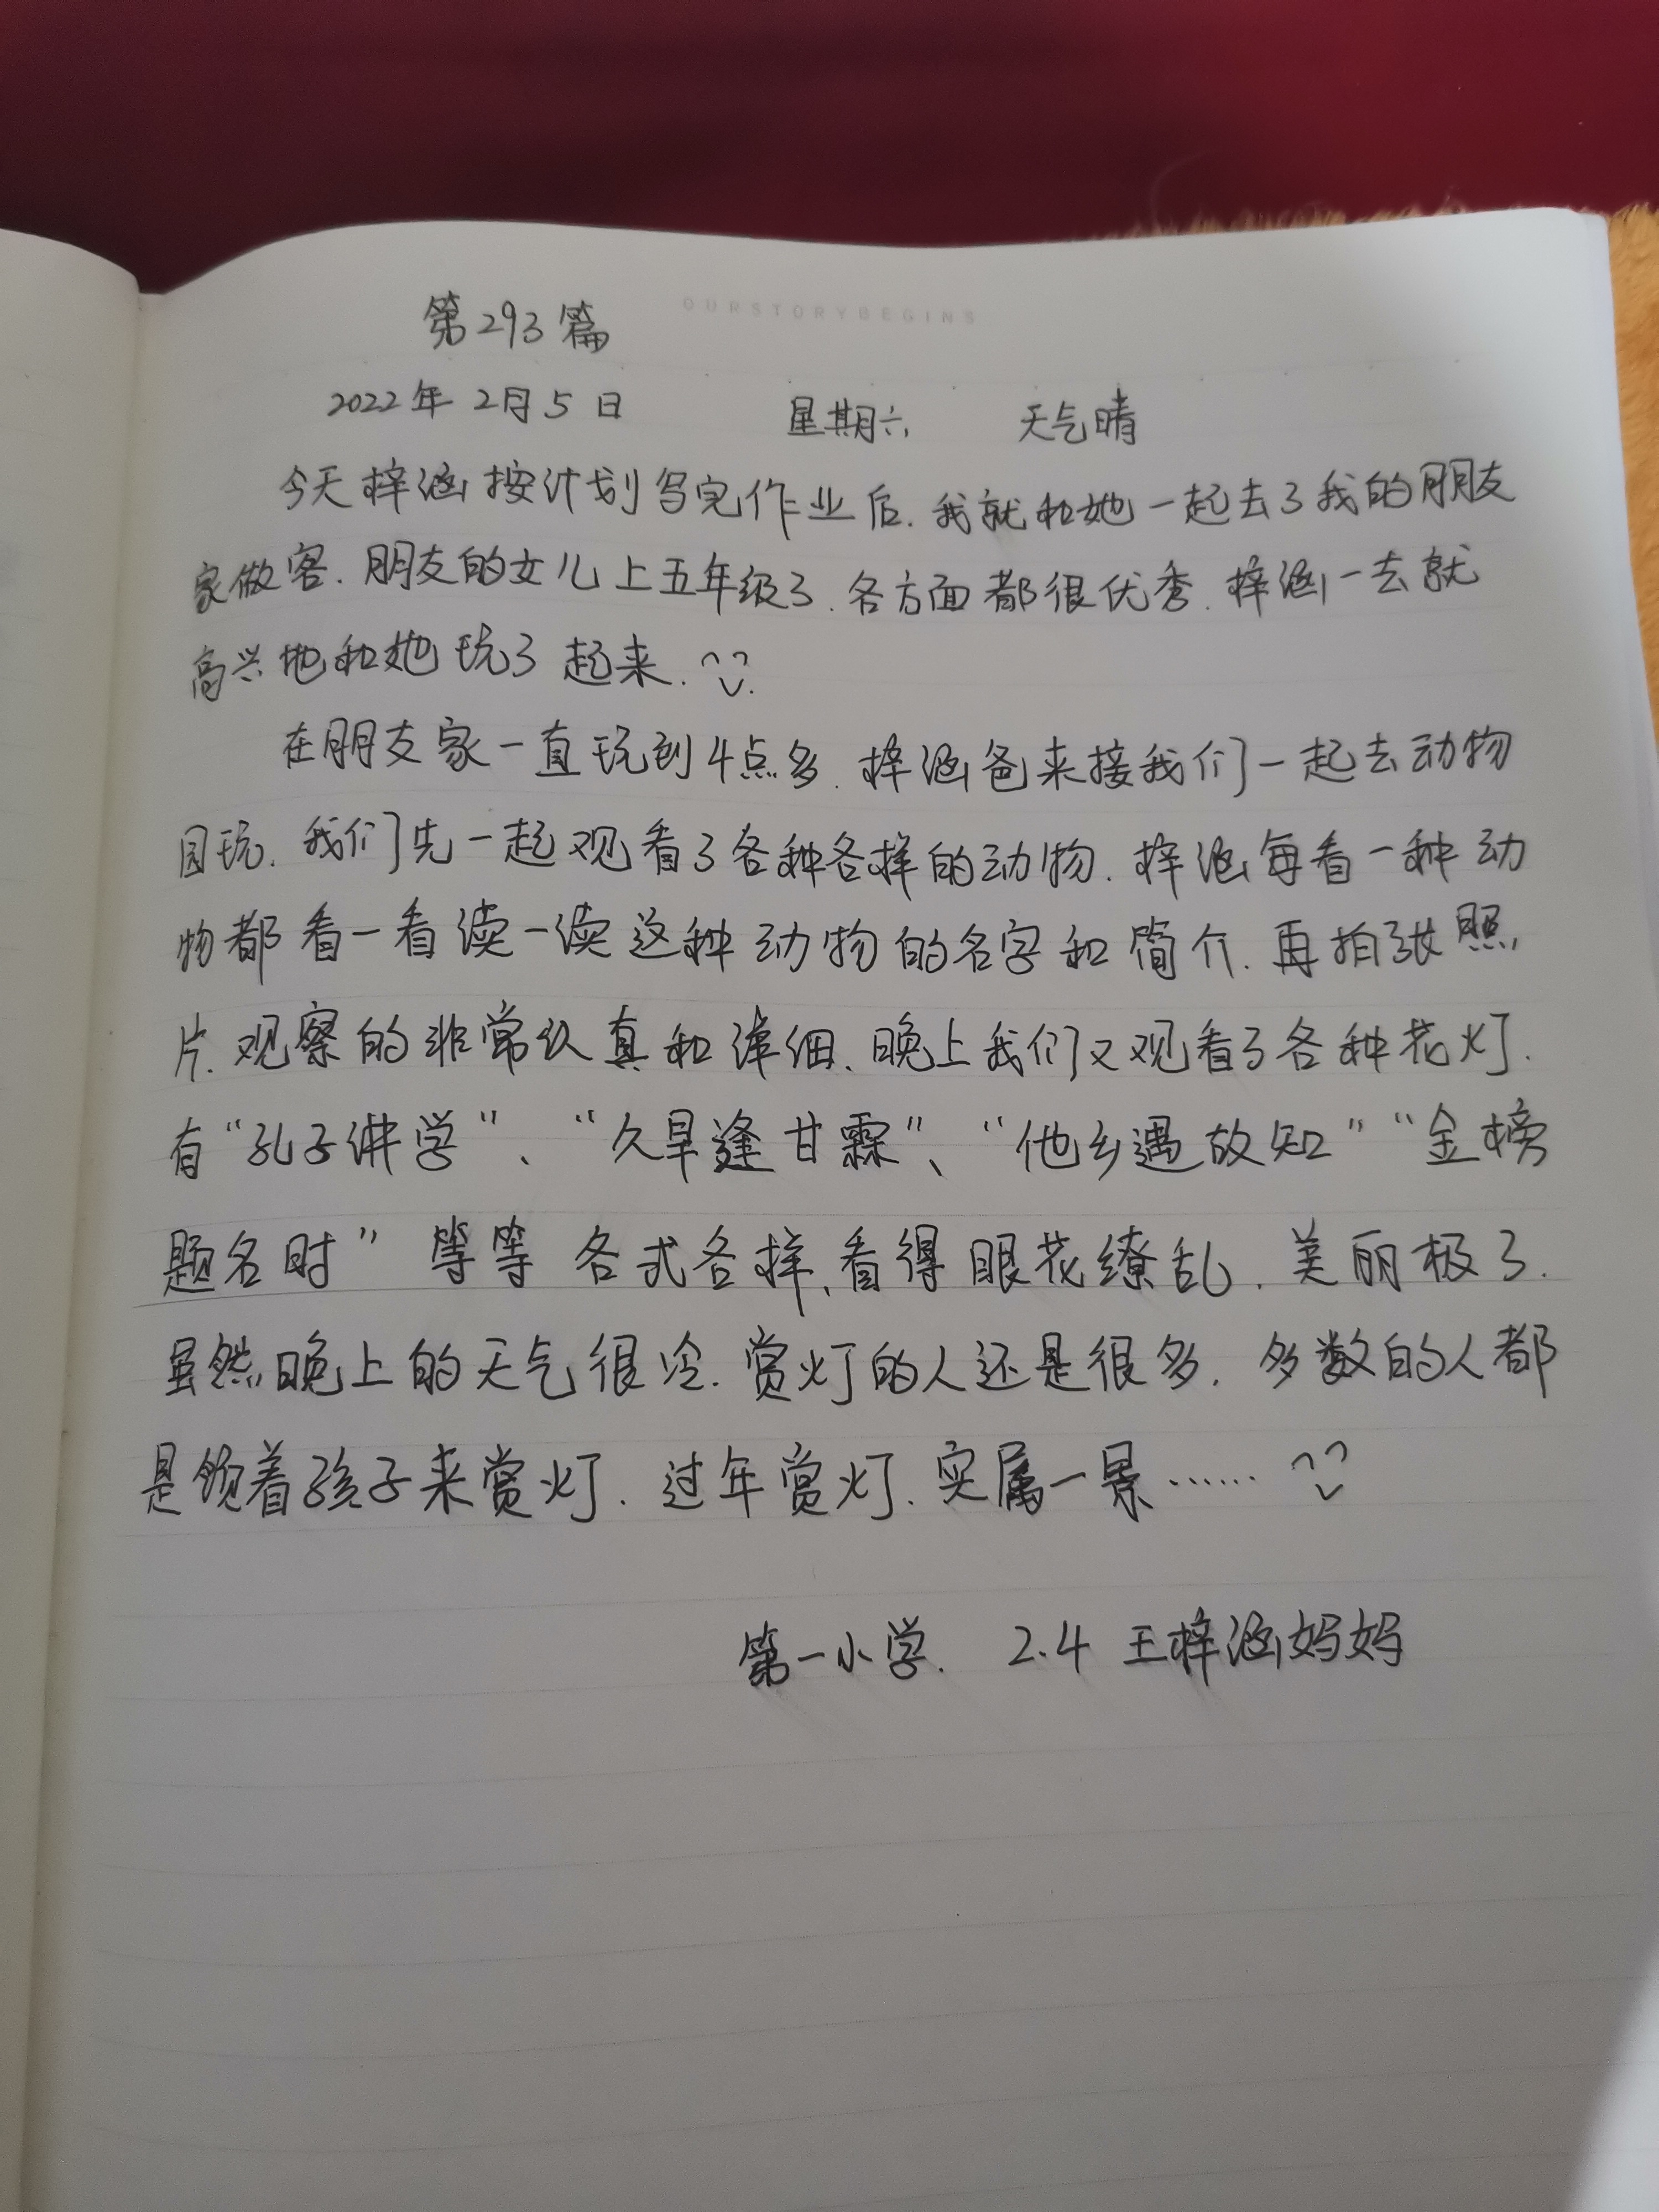 OURSTORYBEGINS
第293篇
2022年2月5日 星期六 天气晴
今天梓涵按计划写完作业后.我就和她一起去了我的朋友
家做客.朋友的女儿上五年级了.各方面都很优秀.梓涵一去就
高兴地和她玩了起来.
在朋友家一直玩到4点多.梓涵爸来接我们一起去动物
园玩.我们先一起观看了各种各样的动物.梓涵每看一种动
物都看一看读一读这种动物的名字和简介.再拍张照
片.观察的非常认真和详细.晚上我们又观看了各种花灯.
有“孔子讲学”、“久旱逢甘霖”、“他乡遇故知”“金榜
题名时”等等各式各样,看得眼花缭乱.美丽极了.
虽然晚上的天气很冷.赏灯的人还是很多.多数的人都
是领着孩子来赏灯.过年赏灯.实属一景……
第一小学. 2.4 王梓涵妈妈